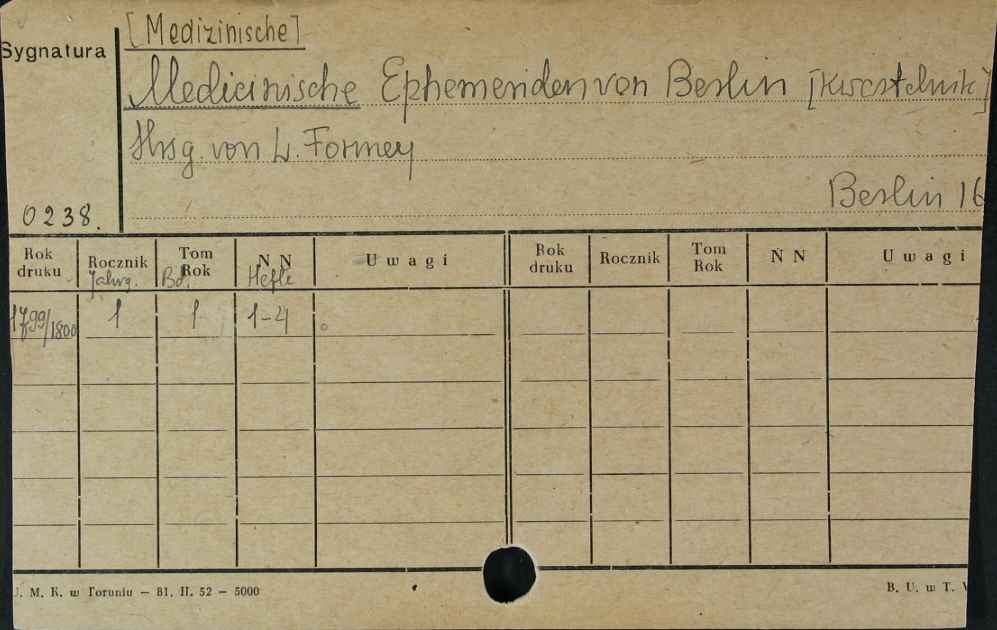 [Medizinische]
Sygnatura
Medicinische Ephemeriden von Berlin [Kwartalnik]
Hrsg. von L. Formey
Berlin 16
0238.
Rok druku Rocznik Jahrg. Tom Rok Bd. N N Hefte Uwagi Rok druku Rocznik Tom Rok N N Uwagi
1799/1800 1 1 1-4
U. M. K. w Toruniu — 81. II. 52 — 5000 B. U. w T.